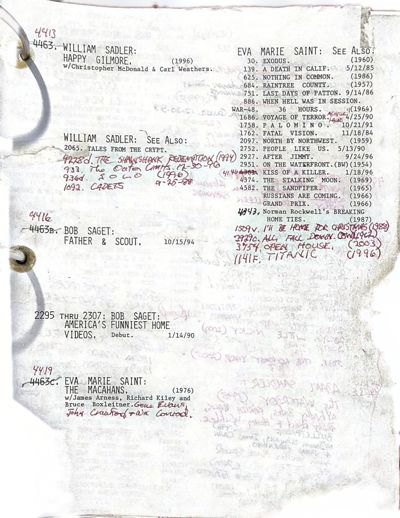 4413
4463. WILLIAM SADLER:
HAPPY GILMORE. (1996)
w/Christopher McDonald & Carl Weathers.
WILLIAM SADLER: SEE ALSO:
2065. TALES FROM THE CRYPT.
4228d. THE SHAWSHANK REDEMPTION (1994)
936d. SOLO (1996)
1092. CADETS 9-25-88
4416
4463B. BOB SAGET:
FATHER & SCOUT. 10/15/94
2295 THRU 2307: BOB SAGET:
AMERICA'S FUNNIEST HOME
VIDEOS. Debut. 1/14/90
4419
4463C. EVA MARIE SAINT:
THE MACAHANS. (1976)
w/James Arness, Richard Kiley and
Bruce Boxleitner. Gene Evans,
John Crawford & Wm Conrad.
EVA MARIE SAINT: SEE ALSO:
30. EXODUS. (1960)
139. A DEATH IN CALIF. 5/12/85
625. NOTHING IN COMMON. (1986)
684. RAINTREE COUNTY. (1957)
1211. LAST DAYS OF PATTON. 9/14/86
886. WHEN HELL WAS IN SESSION.
WAR-48. 36 HOURS. (1964)
1686. VOYAGE OF TERROR. 4/25/90
1758. PALOMINO. 10/21/91
1762. FATAL VISION. 11/18/84
2097. NORTH BY NORTHWEST. (1959)
2752. PEOPLE LIKE US. 5/13/90
2927. AFTER JIMMY. 9/24/96
2951. ON THE WATERFRONT.(BW)(1954)
KISS OF A KILLER. 1/98
4374. THE STALKING MOON. (1969)
4582. THE SANDPIPER. (1965)
RUSSIANS ARE COMING. (1966)
GRAND PRIX. (1966)
4343. Norman Rockwell's BREAKING
HOME TIES. (1987)
1509v. I'LL BE HOME FOR CHRISTMAS (1988)
ALL FALL DOWN. (1962)
3754. OPEN HOUSE. (2003)
1141F. TITANIC (1996)